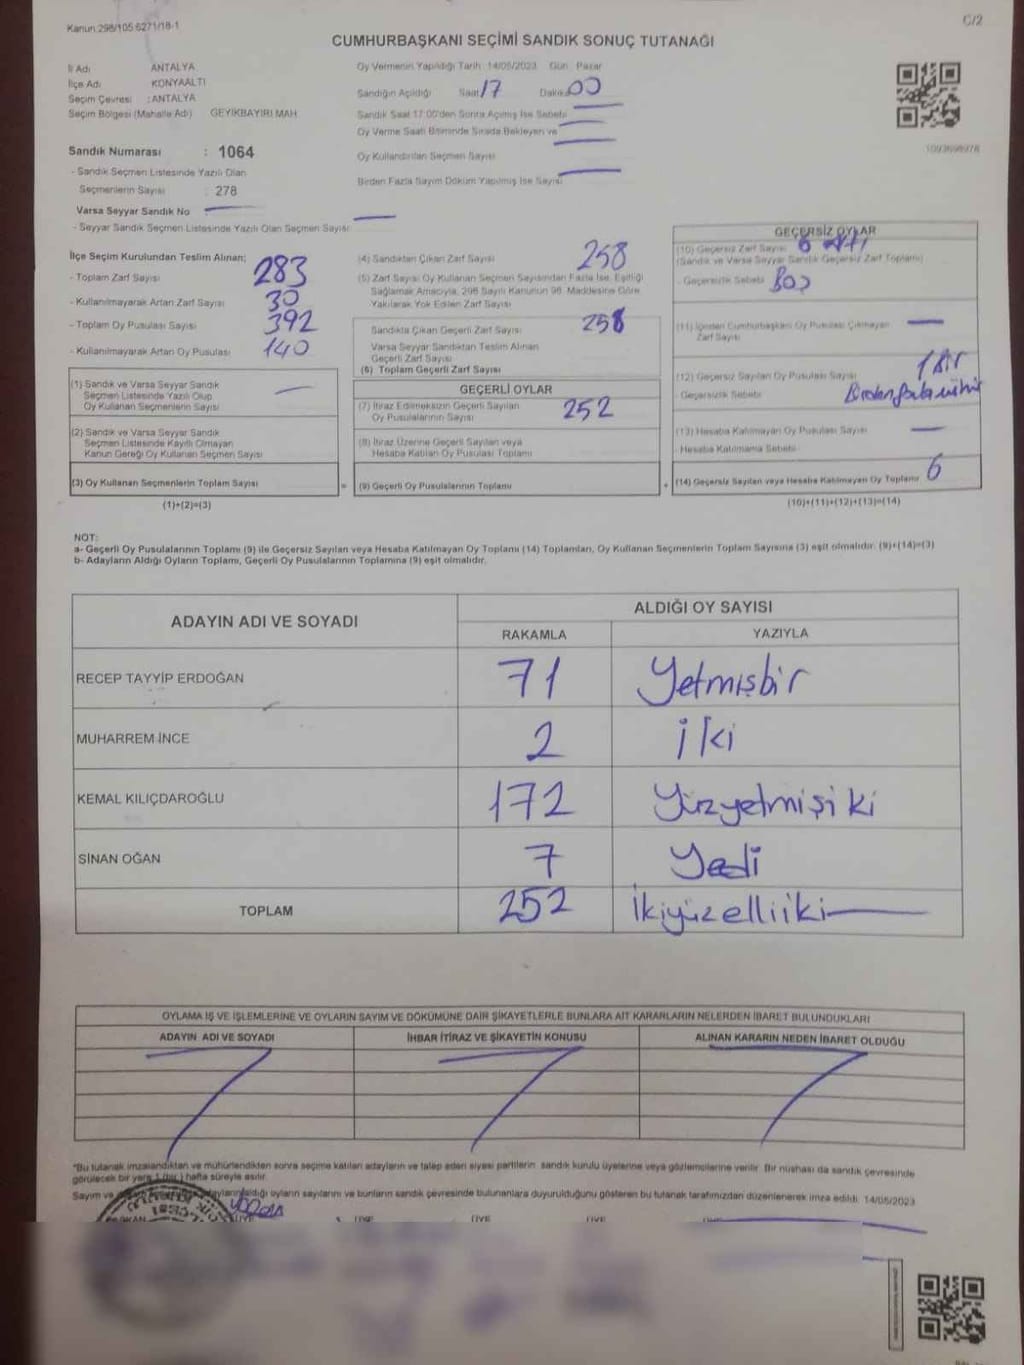 Kanun:298/105 6271/18-1
C/2
CUMHURBAŞKANI SEÇİMİ SANDIK SONUÇ TUTANAĞI
İl Adı ANTALYA
İlçe Adı KONYAALTI
Seçim Çevresi : ANTALYA
Seçim Bölgesi (Mahalle Adı) GEYİKBAYIRI MAH
Sandık Numarası : 1064
- Sandık Seçmen Listesinde Yazılı Olan
Seçmenlerin Sayısı : 278
Varsa Seyyar Sandık No
- Seyyar Sandık Seçmen Listesinde Yazılı Olan Seçmen Sayısı
Oy Vermenin Yapıldığı Tarih: 14/05/2023 Gün: Pazar
Sandığın Açıldığı Saat 17 Dakika 00
Sandık Saat 17:00'den Sonra Açılmış İse Sebebi
Oy Verme Saati Bitiminde Sırada Bekleyen ve
Oy Kullandırılan Seçmen Sayısı
Birden Fazla Sayım Döküm Yapılmış İse Sayısı
İlçe Seçim Kurulundan Teslim Alınan;
- Toplam Zarf Sayısı 283
- Kullanılmayarak Artan Zarf Sayısı 30
- Toplam Oy Pusulası Sayısı 392
- Kullanılmayarak Artan Oy Pusulası 140
(1) Sandık ve Varsa Seyyar Sandık
Seçmen Listesinde Yazılı Olup
Oy Kullanan Seçmenlerin Sayısı
(2) Sandık ve Varsa Seyyar Sandık
Seçmen Listesinde Kayıtlı Olmayan
Kanun Gereği Oy Kullanan Seçmen Sayısı
(3) Oy Kullanan Seçmenlerin Toplam Sayısı
(1)+(2)=(3)
(4) Sandıktan Çıkan Zarf Sayısı 258
(5) Zarf Sayısı Oy Kullanan Seçmen Sayısından Fazla İse, Eşitliği
Sağlamak Amacıyla, 298 Sayılı Kanunun 98. Maddesine Göre
Yakılarak Yok Edilen Zarf Sayısı
Sandıkta Çıkan Geçerli Zarf Sayısı 258
Varsa Seyyar Sandıktan Teslim Alınan
Geçerli Zarf Sayısı
(6) Toplam Geçerli Zarf Sayısı
GEÇERLİ OYLAR
(7) İtiraz Edilmeksizin Geçerli Sayılan
Oy Pusulalarının Sayısı 252
(8) İtiraz Üzerine Geçerli Sayılan veya
Hesaba Katılan Oy Pusulası Toplamı
= (9) Geçerli Oy Pusulalarının Toplamı
GEÇERSİZ OYLAR
(10) Geçersiz Zarf Sayısı 6
(Sandık ve Varsa Seyyar Sandık Geçersiz Zarf Toplamı)
- Geçersizlik Sebebi Boş
(11) İçinden Cumhurbaşkanı Oy Pusulası Çıkmayan
Zarf Sayısı
(12) Geçersiz Sayılan Oy Pusulası Sayısı
- Geçersizlik Sebebi
(13) Hesaba Katılmayan Oy Pusulası Sayısı
- Hesaba Katılmama Sebebi
+ (14) Geçersiz Sayılan veya Hesaba Katılmayan Oy Toplamı 6
(10)+(11)+(12)+(13)=(14)
NOT:
a- Geçerli Oy Pusulalarının Toplamı (9) ile Geçersiz Sayılan veya Hesaba Katılmayan Oy Toplamı (14) Toplamları, Oy Kullanan Seçmenlerin Toplam Sayısına (3) eşit olmalıdır. (9)+(14)=(3)
b- Adayların Aldığı Oyların Toplamı, Geçerli Oy Pusulalarının Toplamına (9) eşit olmalıdır.
ADAYIN ADI VE SOYADI
ALDIĞI OY SAYISI
RAKAMLA YAZIYLA
RECEP TAYYİP ERDOĞAN 71 Yetmişbir
MUHARREM İNCE 2 iki
KEMAL KILIÇDAROĞLU 172 Yüzyetmişiki
SİNAN OĞAN 7 Yedi
TOPLAM 252 İkiyüzelliiki
OYLAMA İŞ VE İŞLEMLERİNE VE OYLARIN SAYIM VE DÖKÜMÜNE DAİR ŞİKAYETLERLE BUNLARA AİT KARARLARIN NELERDEN İBARET BULUNDUKLARI
ADAYIN ADI VE SOYADI İHBAR İTİRAZ VE ŞİKAYETİN KONUSU ALINAN KARARIN NEDEN İBARET OLDUĞU
*Bu tutanak imzalandıktan ve mühürlendikten sonra seçime katılan adayların ve talep eden siyasi partilerin sandık kurulu üyelerine veya gözlemcilerine verilir. Bir nüshası da sandık çevresinde
görülecek bir yere 1 (bir) hafta süreyle asılır.
Sayım ve aldığı oyların sayılarını ve bunların sandık çevresinde bulunanlara duyurulduğunu gösteren bu tutanak tarafımızdan düzenlenerek imza edildi. 14/05/2023
ÜYE ÜYE ÜYE